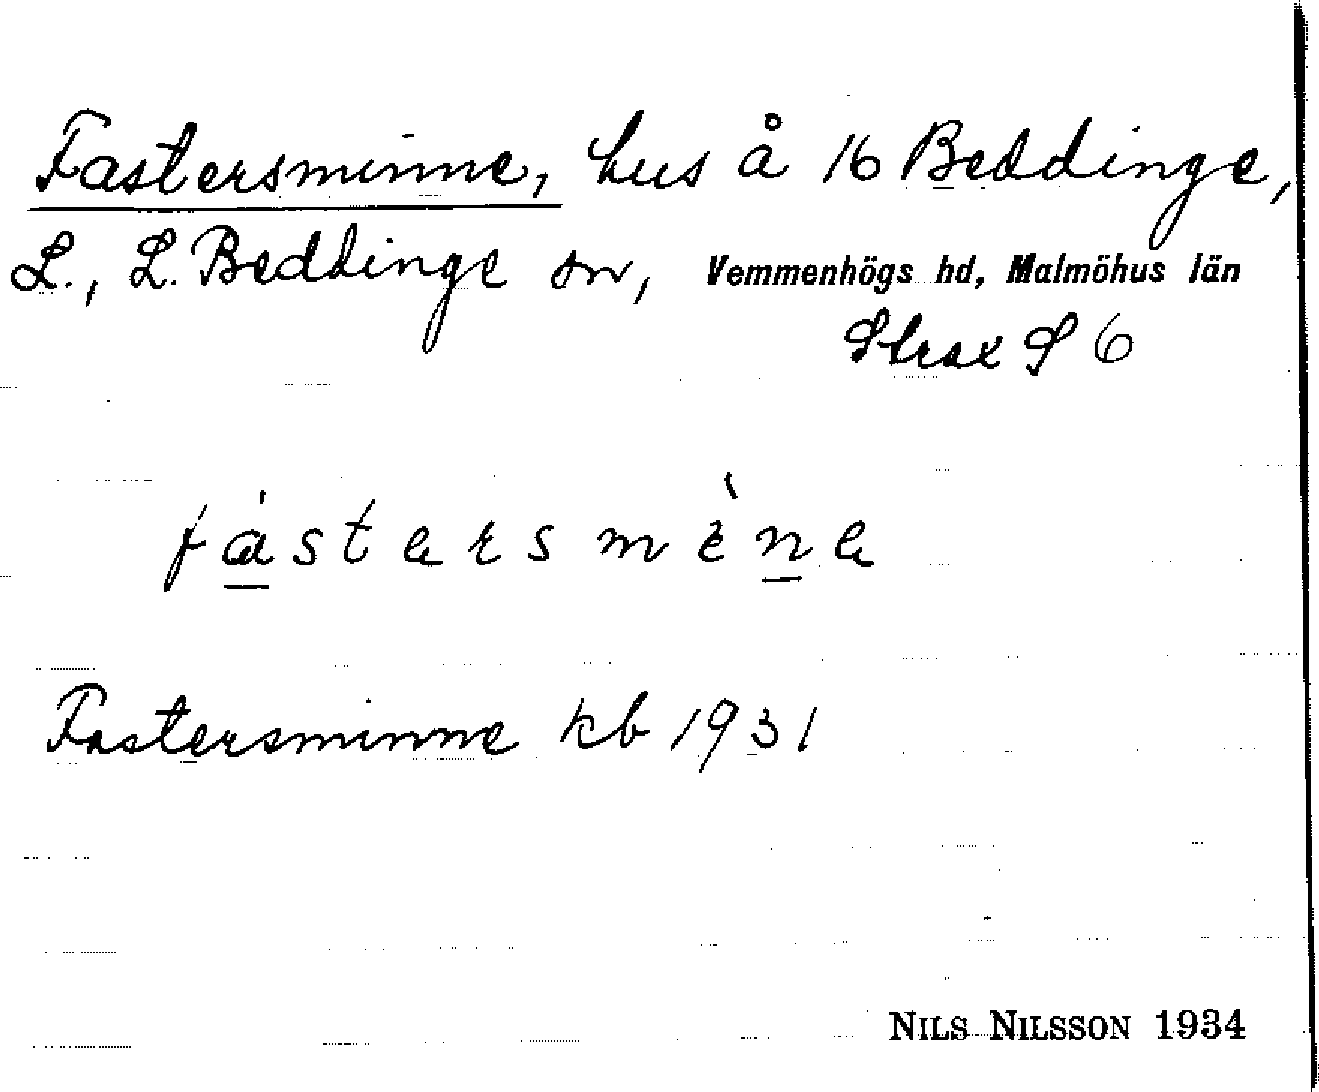 Fastersminne, hus å 16 Beddinge,
L., L. Beddinge sn, Vemmenhögs hd, Malmöhus län
Strax S 6
fástersmène
Fastersminne kb 1931
NILS NILSSON 1934